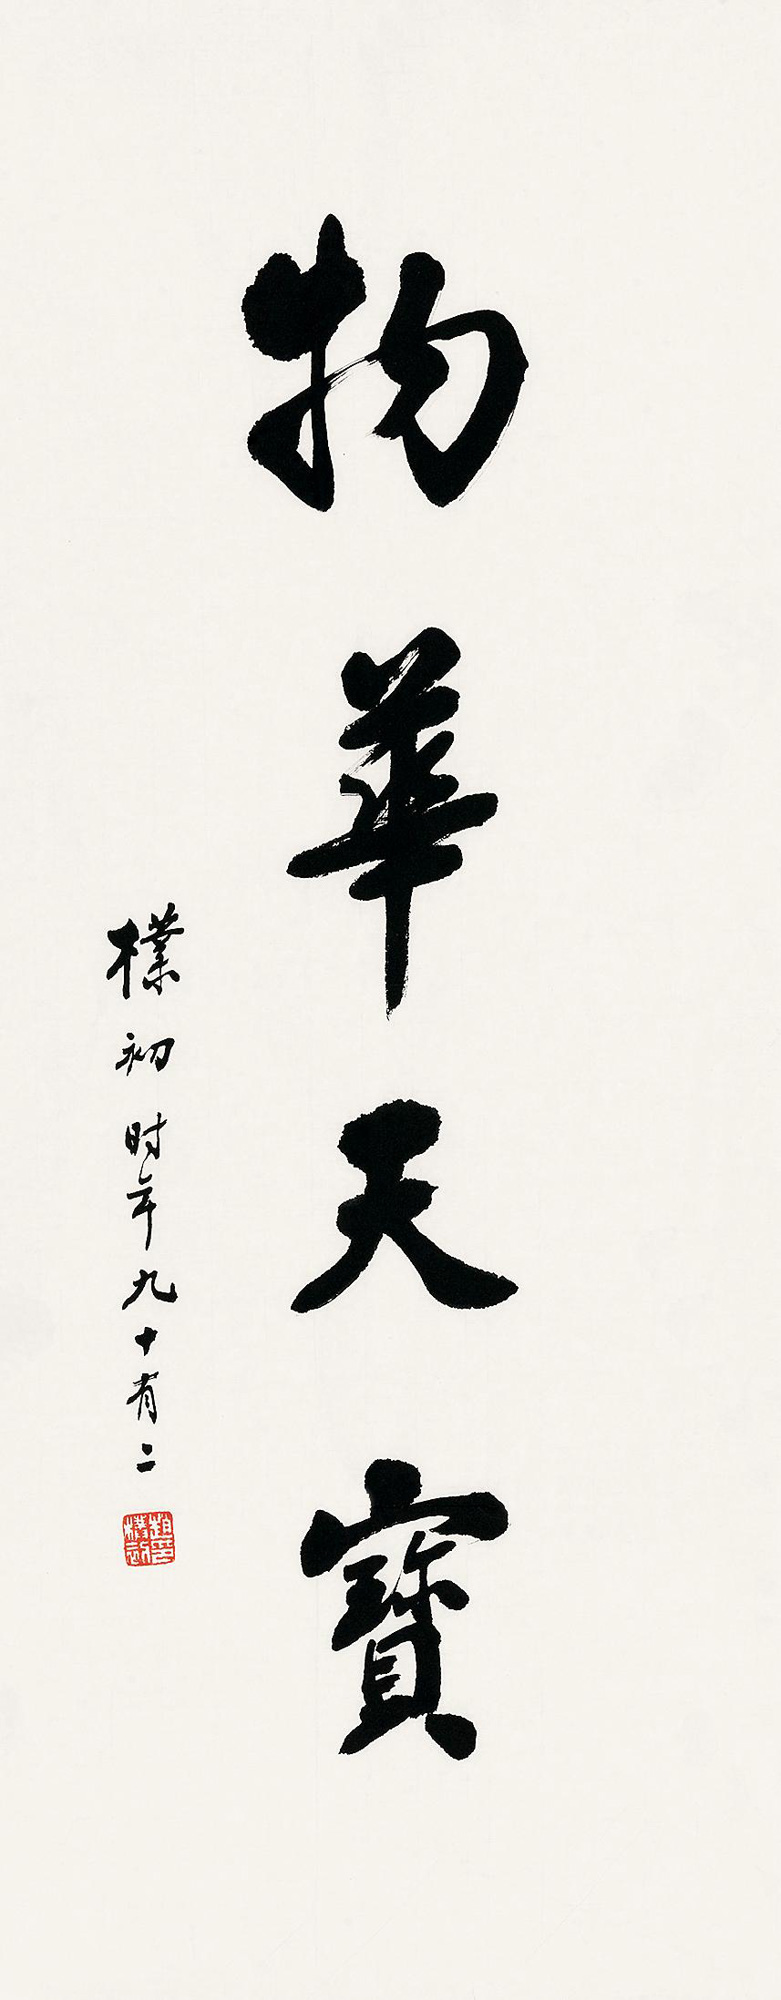 物華天寶
樸初时年九十有二
趙樸初印